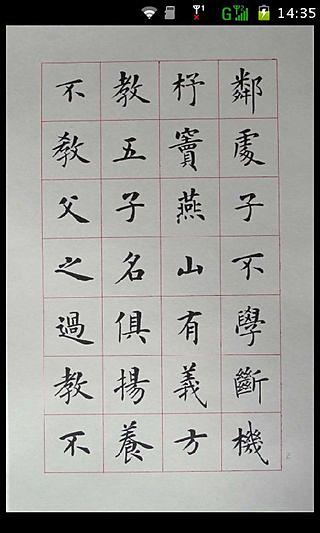 14:35
鄰處子不學斷機
杼竇燕山有義方
教五子名俱揚養
不教父之過教不